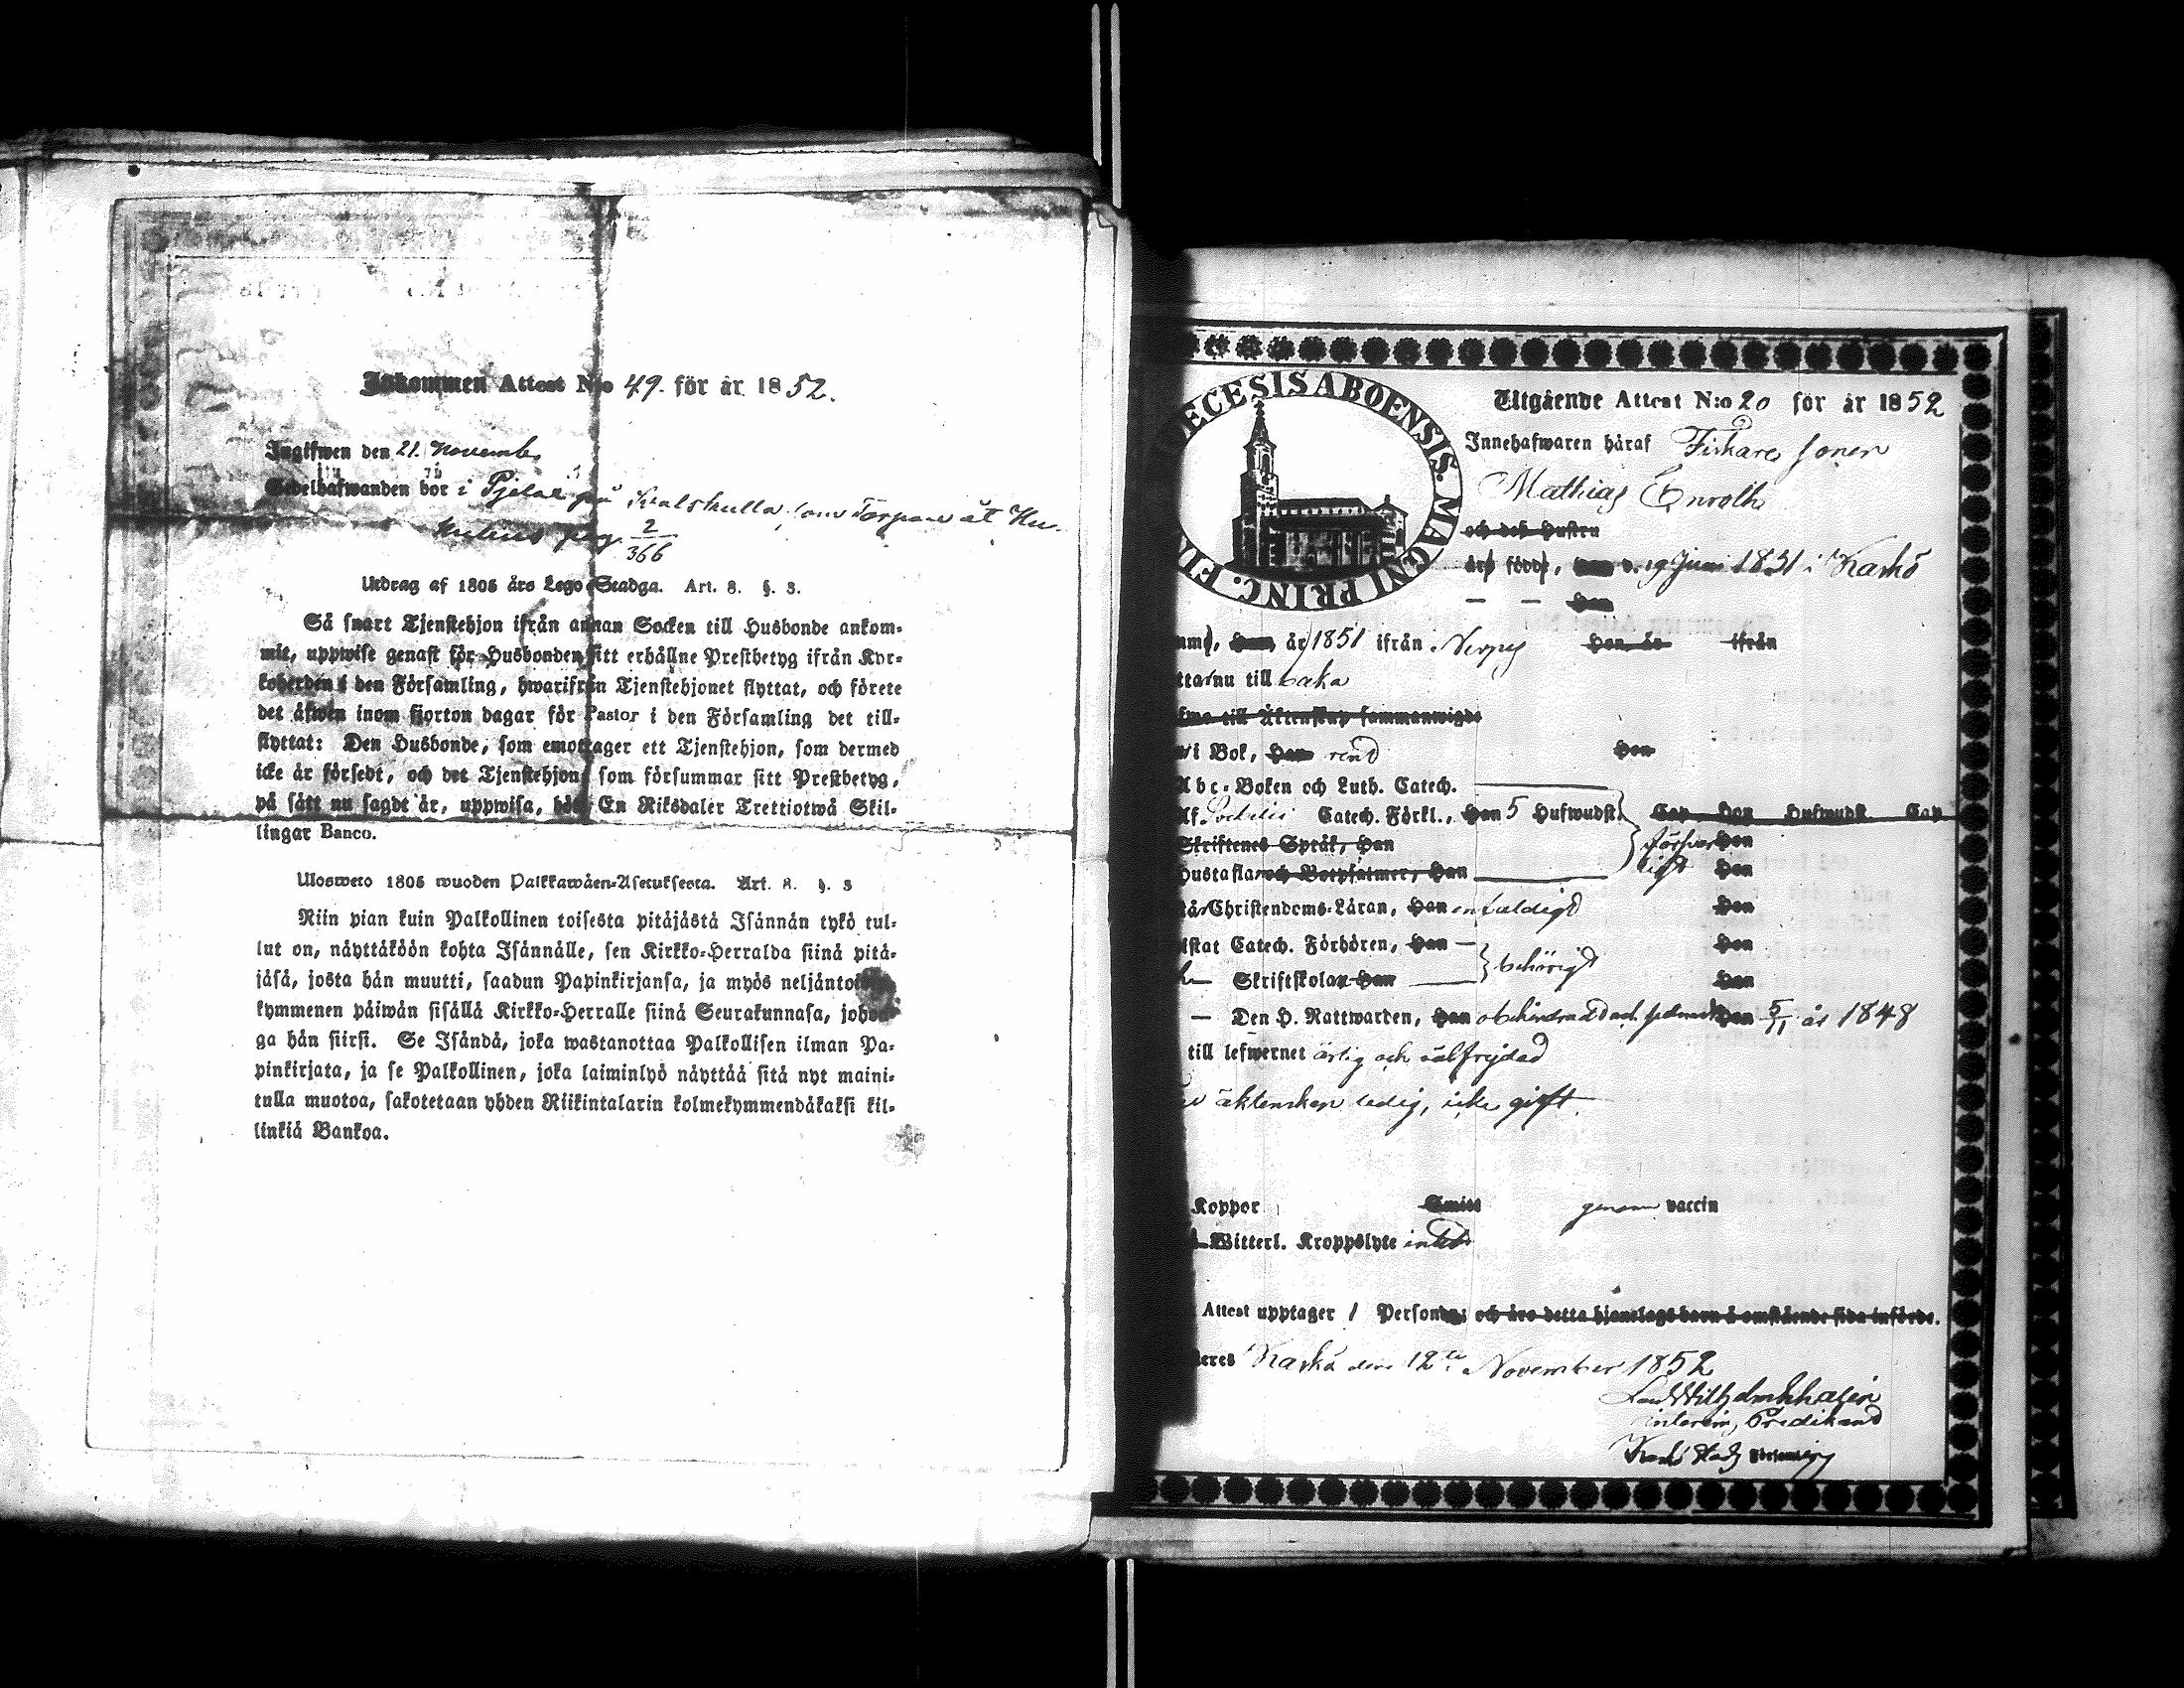 Inkommen Attest N:o 49. för år 1852.
Ingifwen den 21. November
Sedelhafwanden bor i Pjelax på som Torpare åt
pag. 2/366
Utdrag af 1805 års Lego-Stadga. Art. 8. §. 3.
Så snart Tjenstehjon ifrån annan Socken till Husbonde ankom-
mit, uppwise genast för Husbonden sitt erhållne Prestbetyg ifrån Kyr-
koherden i den Församling, hwarifrån Tjenstehjonet flyttat, och förete
det äfwen inom fjorton dagar för Pastor i den Församling det till-
flyttat: Den Husbonde, som emottager ett Tjenstehjon, som dermed
icke är försedt, och det Tjenstehjon som försummar sitt Prestbetyg,
på sätt nu sagdt är, uppwisa, böte En Riksdaler Trettiotwå Skil-
lingar Banco.
Ulosweto 1805 wuoden Palkkawäen-Asetuksesta. Art. 8. §. 3
Niin pian kuin Palkollinen toisesta pitäjästä Isännän tykö tul-
lut on, näyttäköön kohta Isännälle, sen Kirkko-Herralda siinä pitä-
jäsä, josta hän muutti, saadun Papinkirjansa, ja myös neljäntoista
kymmenen päiwän sisällä Kirkko-Herralle siinä Seurakunnasa, johon-
ga hän siirsi. Se Isändä, joka wastanottaa Palkollisen ilman Pa-
pinkirjata, ja se Palkollinen, joka laiminlyö näyttää sitä nyt maini-
tulla muotoa, sakotetaan yhden Riikintalarin kolmekymmendäkaksi kil-
linkiä Bankoa.
ECESIS ABOENSIS. MAGNI PRINC. FI
Utgående Attest N:o 20 för år 1852
Innehafwaren häraf Fiskare sonen
Mathias Enroth
och dess Hustru
är född, han d. 19 Juni 1831 i Kaskö
— — Hon
, han, år 1851 ifrån Nerpes Hon, år ifrån
nu till baka
till Äktenskap sammanwigde
i Bok, Han rent Hon
Abc-Boken och Luth. Catech.
af Svebilii Catech. Förkl., Han 5 Hufwudst. Cap. Hon Hufwudst. Cap
Skriftenes Språk, Han försvar Hon
Hustaflan och Botpsalmer, Han ligt Hon
Christendoms-Läran, Han enfaldigt Hon
Catech. Förhören, Han — behörigt Hon
— Skriftskolan Han Hon
— Den H. Nattwarden, Han obehindrad och Hon 5/11 år 1848
till lefwernet ärlig och välfrejdad
äktenskap ledig, icke gift.
Koppor Smitt genom vaccin
Witterl. Kroppslyte intet
Attest upptager 1 Person; och äro detta hjonelags barn å omstående sida införde.
Kaskö den 12te November 1852
interim, Predikant
Kaskö Stads Församling